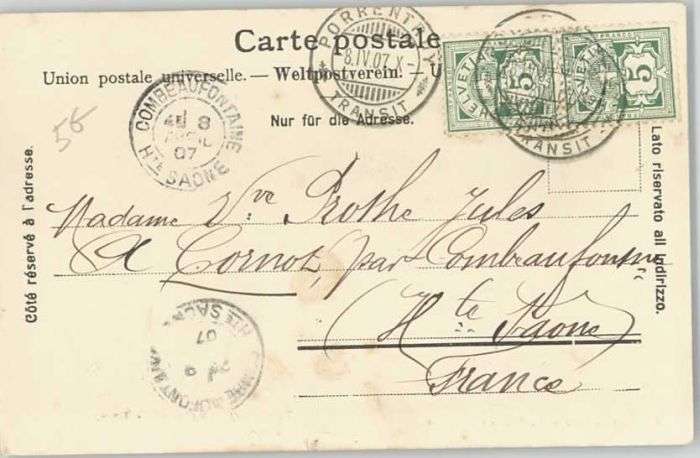 Carte postale
Union postale universelle. — Weltpostverein. — U
Nur für die Adresse.
Côté réservé à l'adresse.
Lato riservato all indirizzo.
PORRENTRUY
8.IV.07.X-
TRANSIT
HELVETIA
5
FRANCO
HELVETIA
5
FRANCO
TRANSIT
COMBEAUFONTAINE
8
07
HTE SAÔNE
58
Madame Vve Prothe Jules
A Cornot, par Combeaufontaine
Hte Saône
France
HTE SAÔNE
07
9